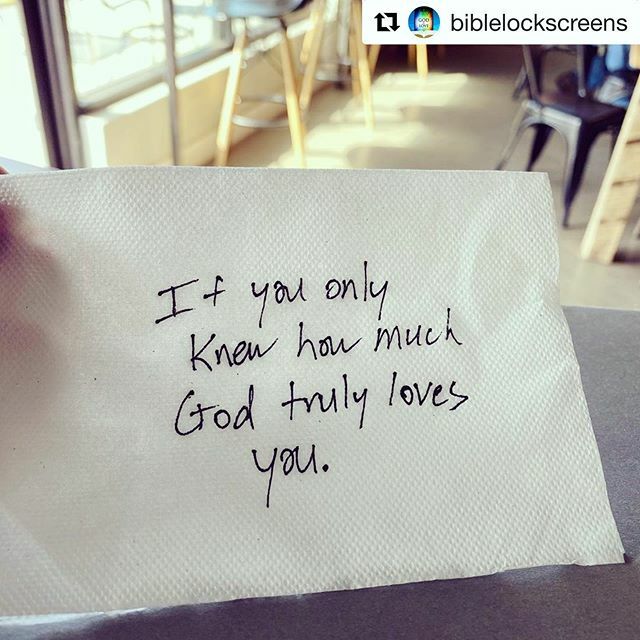 biblelockscreens
If you only
Knew how much
God truly loves
you.